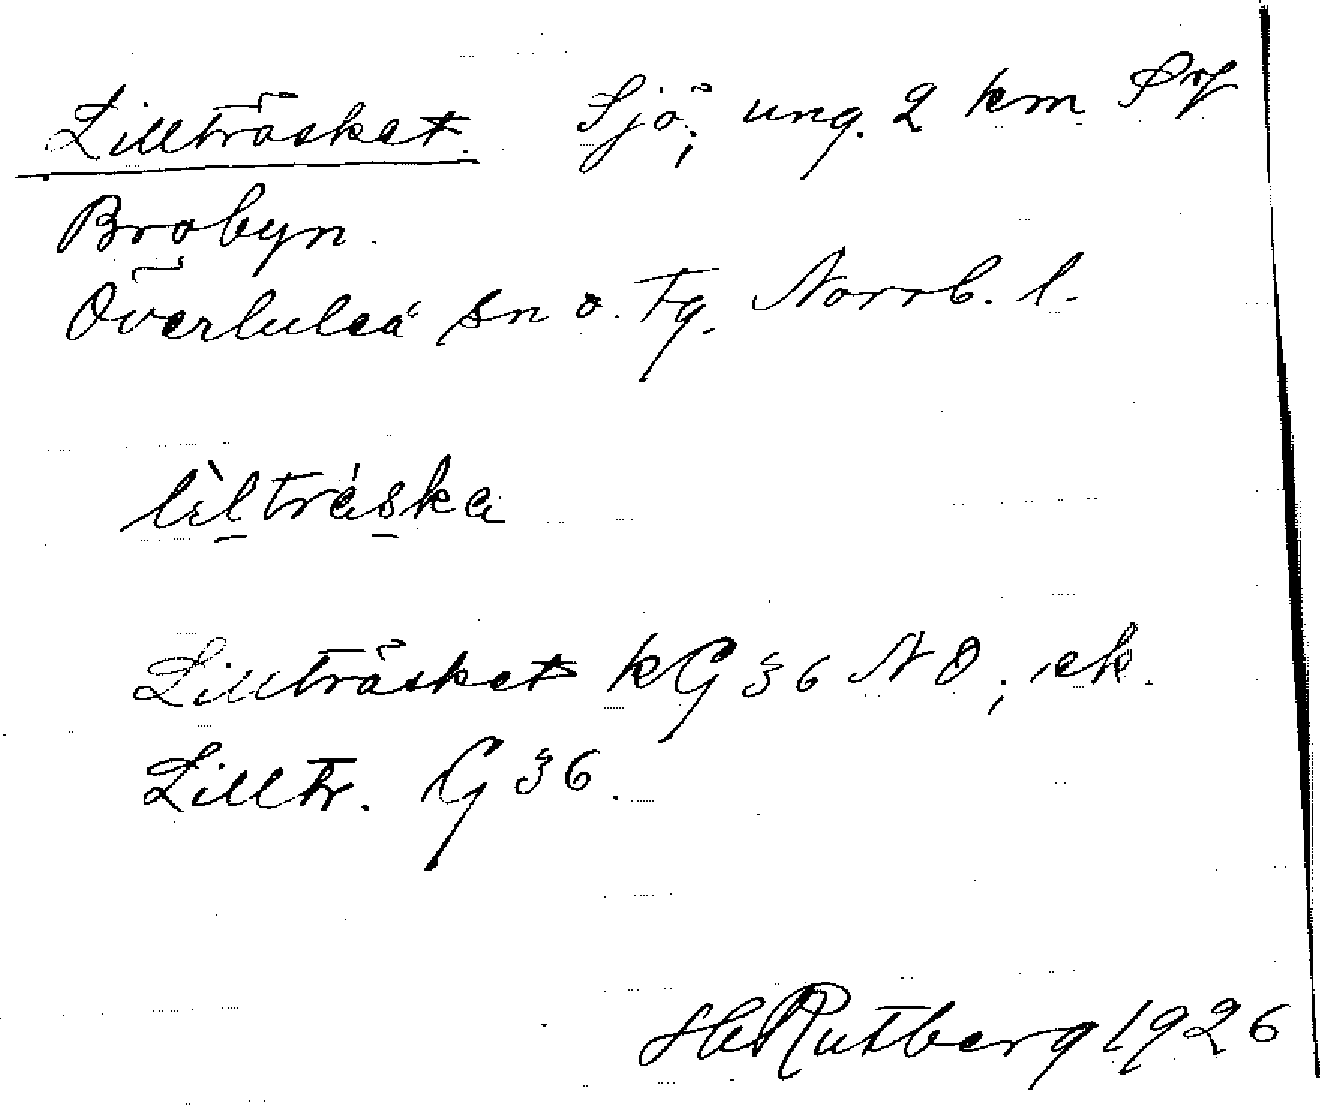 Lillträsket. Sjö, ung. 2 km
Brobyn.
Överluleå sn o. Tg. Norrb. l.
lìlträ́ska
Lillträsket kG 36 NO, ek.
Lilltr. G 36.
H Rutberg 1926